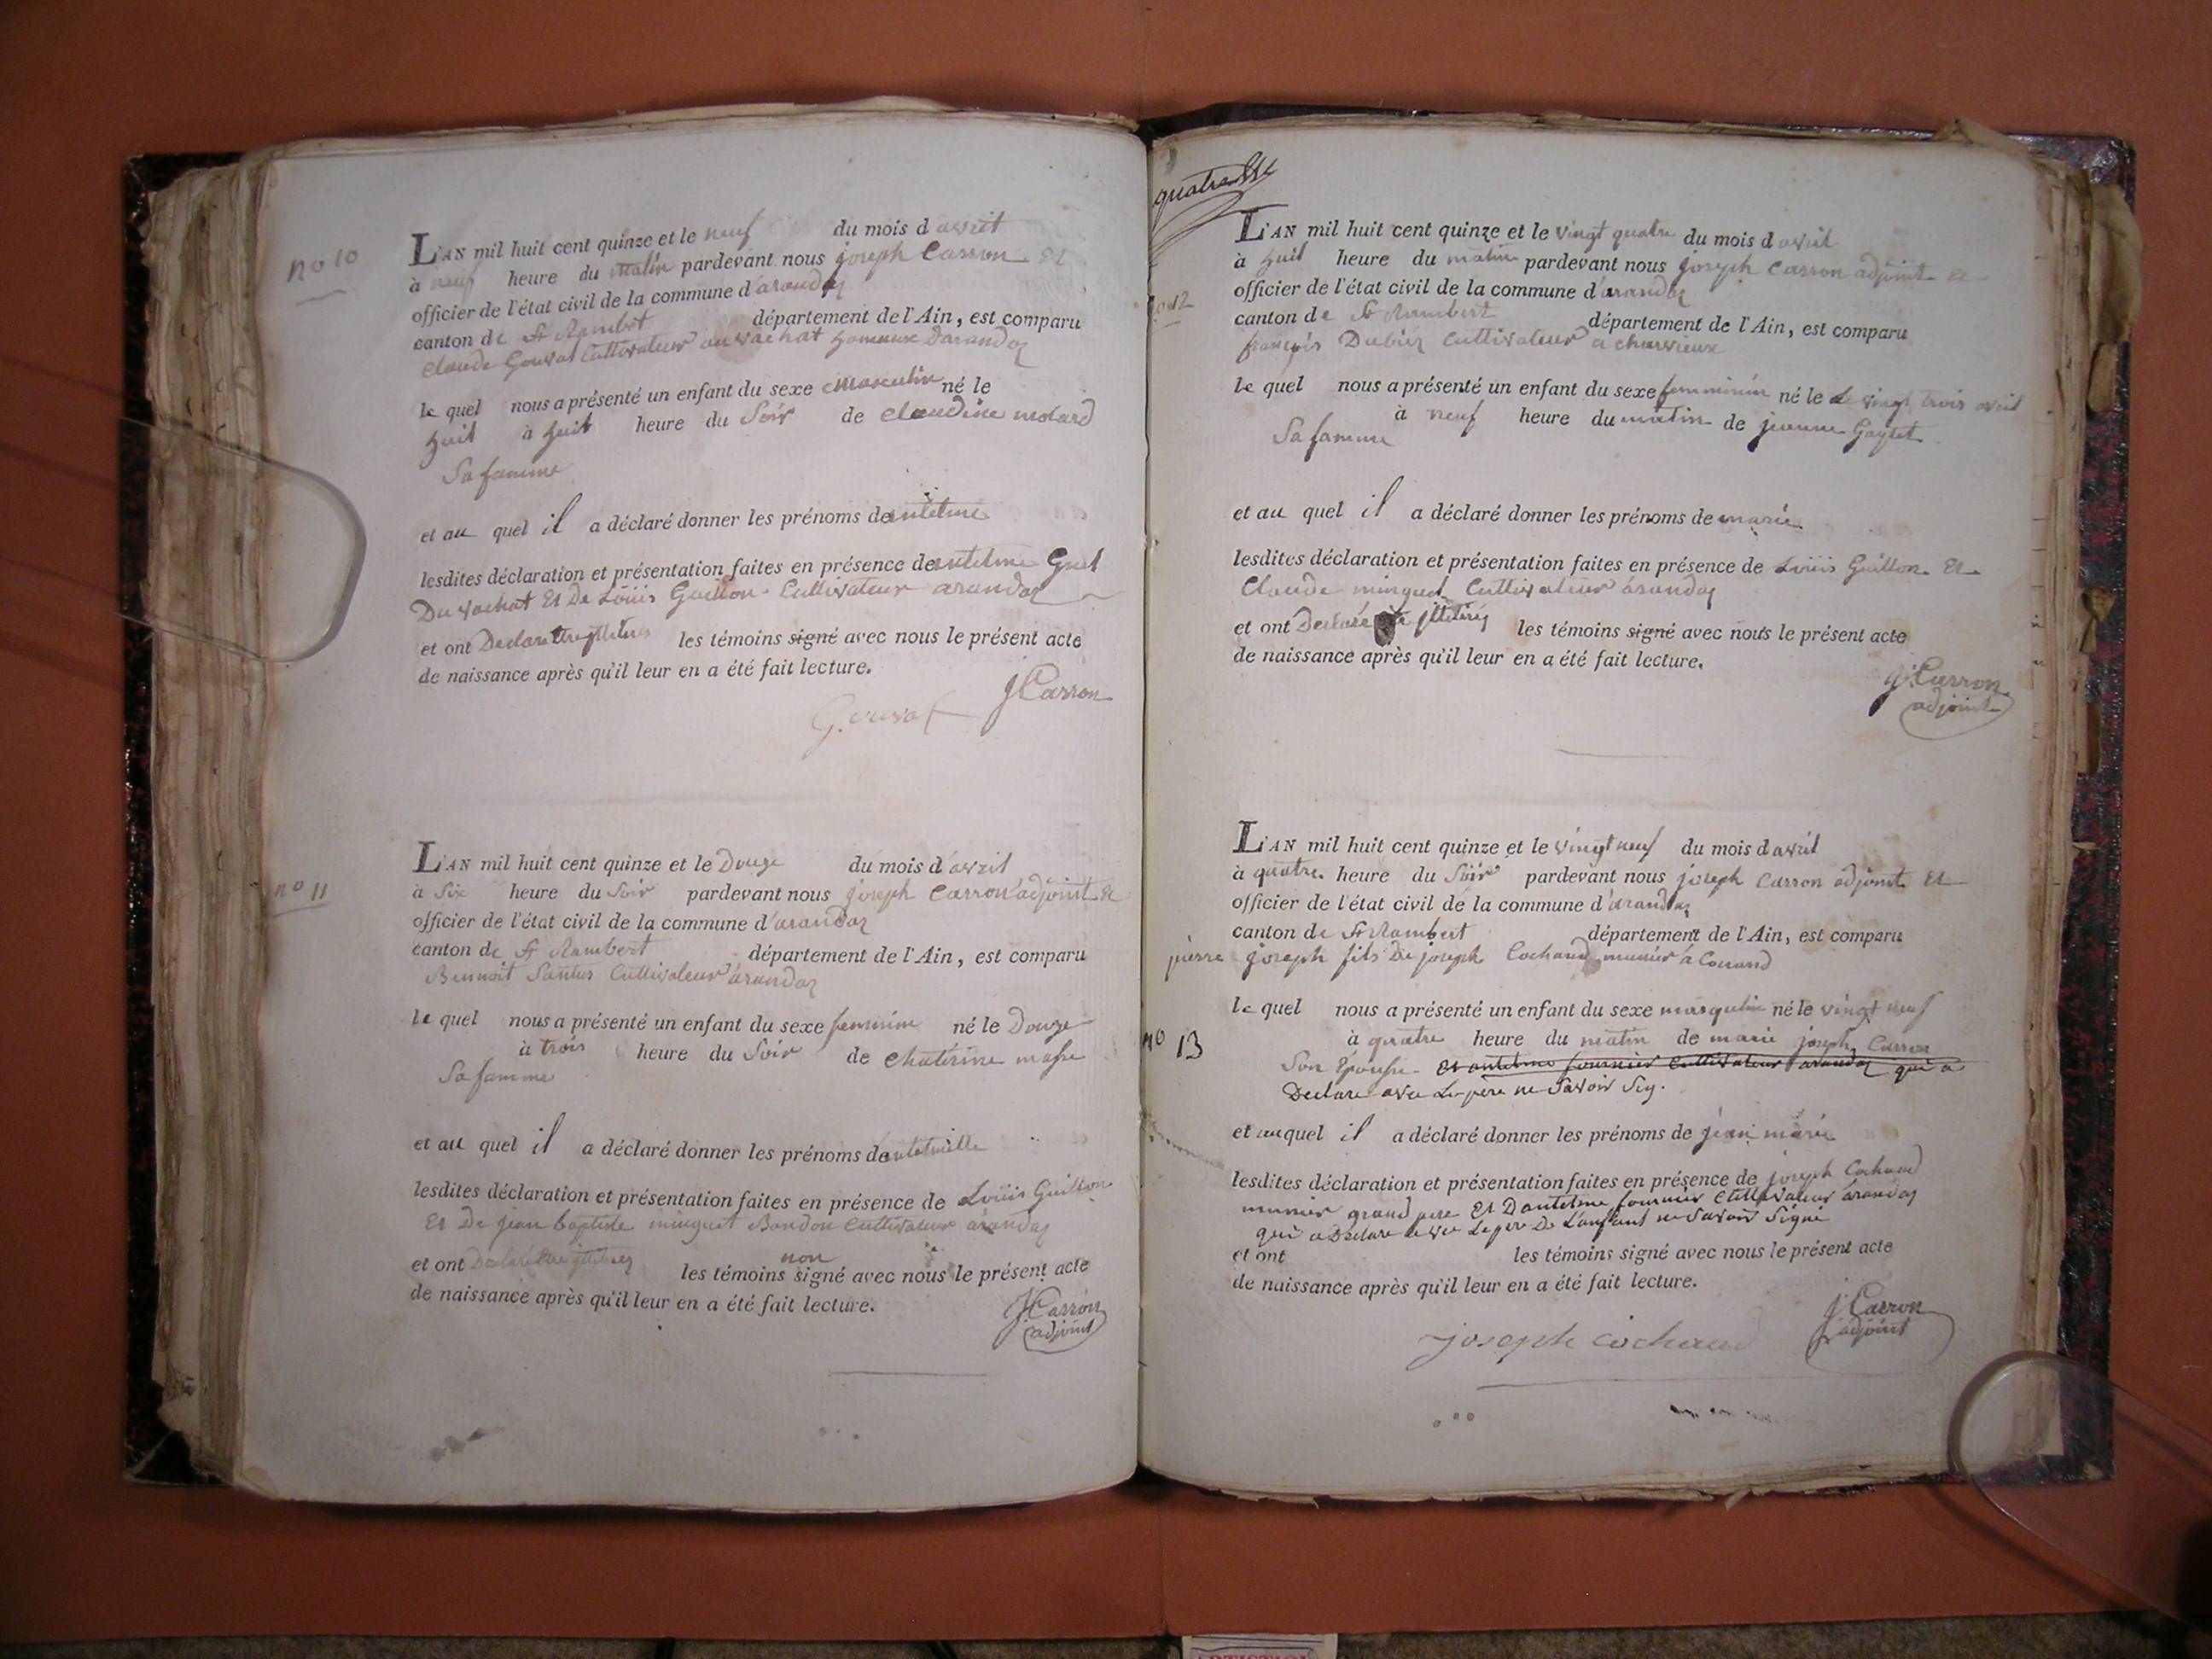 no 10
L'AN mil huit cent quinze et le neuf du mois d avril
à neuf heure du matin pardevant nous joseph Carron Et
officier de l'état civil de la commune d'arandas
canton de St Rambert département de l'Ain, est comparu
claude Gouvat Cultivateur au vachat hameaux Darandas
le quel nous a présenté un enfant du sexe Masculin né le
huit à huit heure du Soir de claudine molard
Sa famme
et au quel il a déclaré donner les prénoms de antelme
lesdites déclaration et présentation faites en présence de antelme
Du vachat Et De Loüis Guillon Cultivateur arandas
et ont Declare les témoins signé avec nous le présent acte
de naissance après qu'il leur en a été fait lecture.
J Carron
Gouvat
no 11
L'AN mil huit cent quinze et le Douze du mois d'avril
à Six heure du Soir pardevant nous joseph Carron adjoint Et
officier de l'état civil de la commune d'arandas
canton de St Rambert département de l'Ain, est comparu
Bennoit Santus Cultivateur arandas
le quel nous a présenté un enfant du sexe feminim né le Douze
à trois heure du Soir de chaterine masse
Sa famme
et au quel il a déclaré donner les prénoms de
lesdites déclaration et présentation faites en présence de Loüis Guillon
Et De jean baptiste minguet Cultivateur arandas
non
et ont les témoins signé avec nous le présent acte
de naissance après qu'il leur en a été fait lecture.
J Carron
adjoint
quatre
no 12
L'AN mil huit cent quinze et le vingt quatre du mois d avril
à huit heure du matin pardevant nous joseph Carron adjoint Et
officier de l'état civil de la commune d'arandas
canton de St Rambert département de l'Ain, est comparu
françois Cultivateur a charvieux
le quel nous a présenté un enfant du sexe né le Le vingt trois avril
à neuf heure du matin de jeanne
Sa famme
et au quel il a déclaré donner les prénoms de marie
lesdites déclaration et présentation faites en présence de Loüis Guillon Et
Claude minguet Cultivateur arandas
et ont Declaré les témoins signé avec nous le présent acte
de naissance après qu'il leur en a été fait lecture.
J Carron
adjoint
L'AN mil huit cent quinze et le vingt neuf du mois d avril
à quatre heure du Soir pardevant nous joseph Carron adjoint Et
officier de l'état civil de la commune d'arandas
canton de St Rambert département de l'Ain, est comparu
pierre joseph fils De joseph Cochaud munier à
le quel nous a présenté un enfant du sexe masqulin né le vingt neuf
no 13
à quatre heure du matin de marie joseph Carron
Son Epousse Et antelme fournier Cultivateur arandas qui a
Declare avec Le père ne Savoir Sig.
et auquel il a déclaré donner les prénoms de jean marie
lesdites déclaration et présentation faites en présence de joseph Cochaud
munier grand pere Et D antelme fournier Cultivateur arandas
qui a Declare avec Le pere De L'anfant ne Savoir Signé
et ont les témoins signé avec nous le présent acte
de naissance après qu'il leur en a été fait lecture.
J Carron
adjoint
joseph cochaud